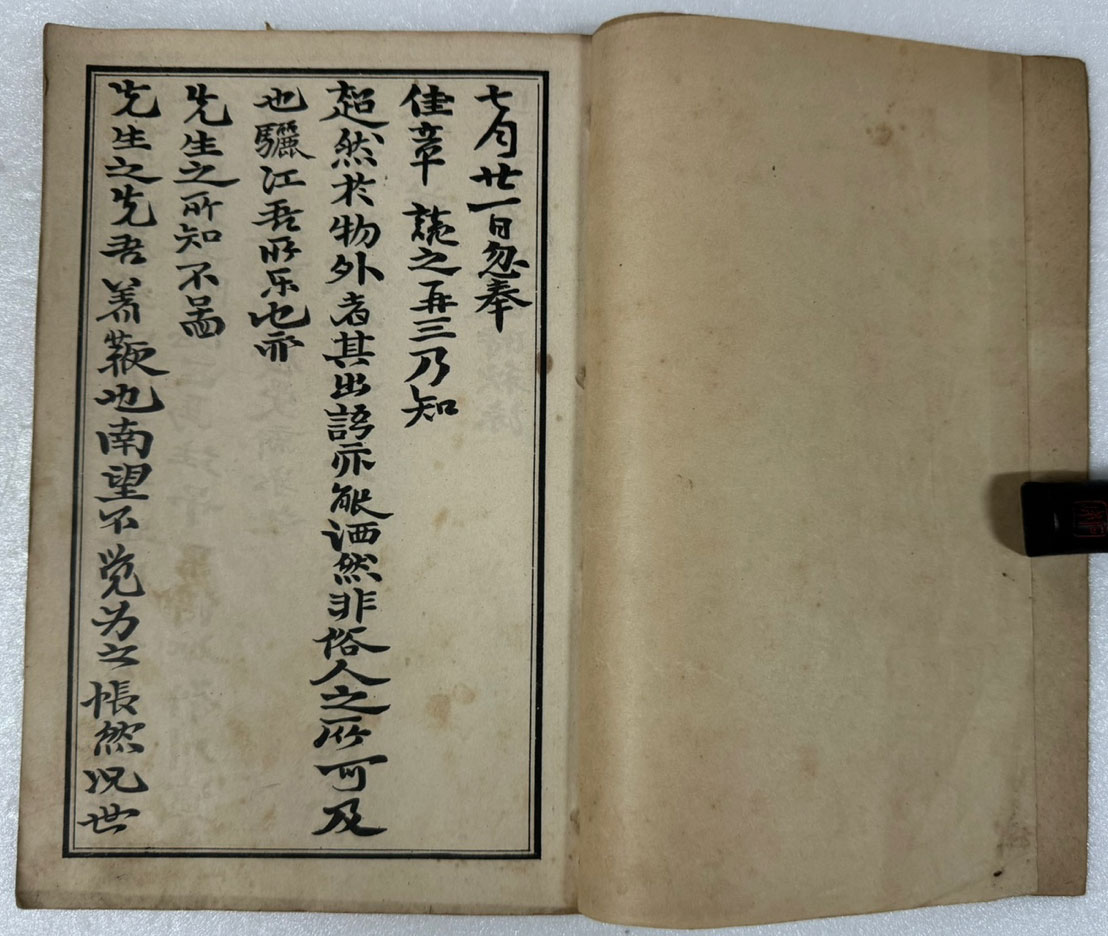 七月廿一日忽奉
佳章讀之再三乃知
超然於物外者其出語亦能洒然非俗人之所可及
也驪江吾所乐也亦
先生之所知不
先生之先吾著鞭也南望不覚为之悵然况世